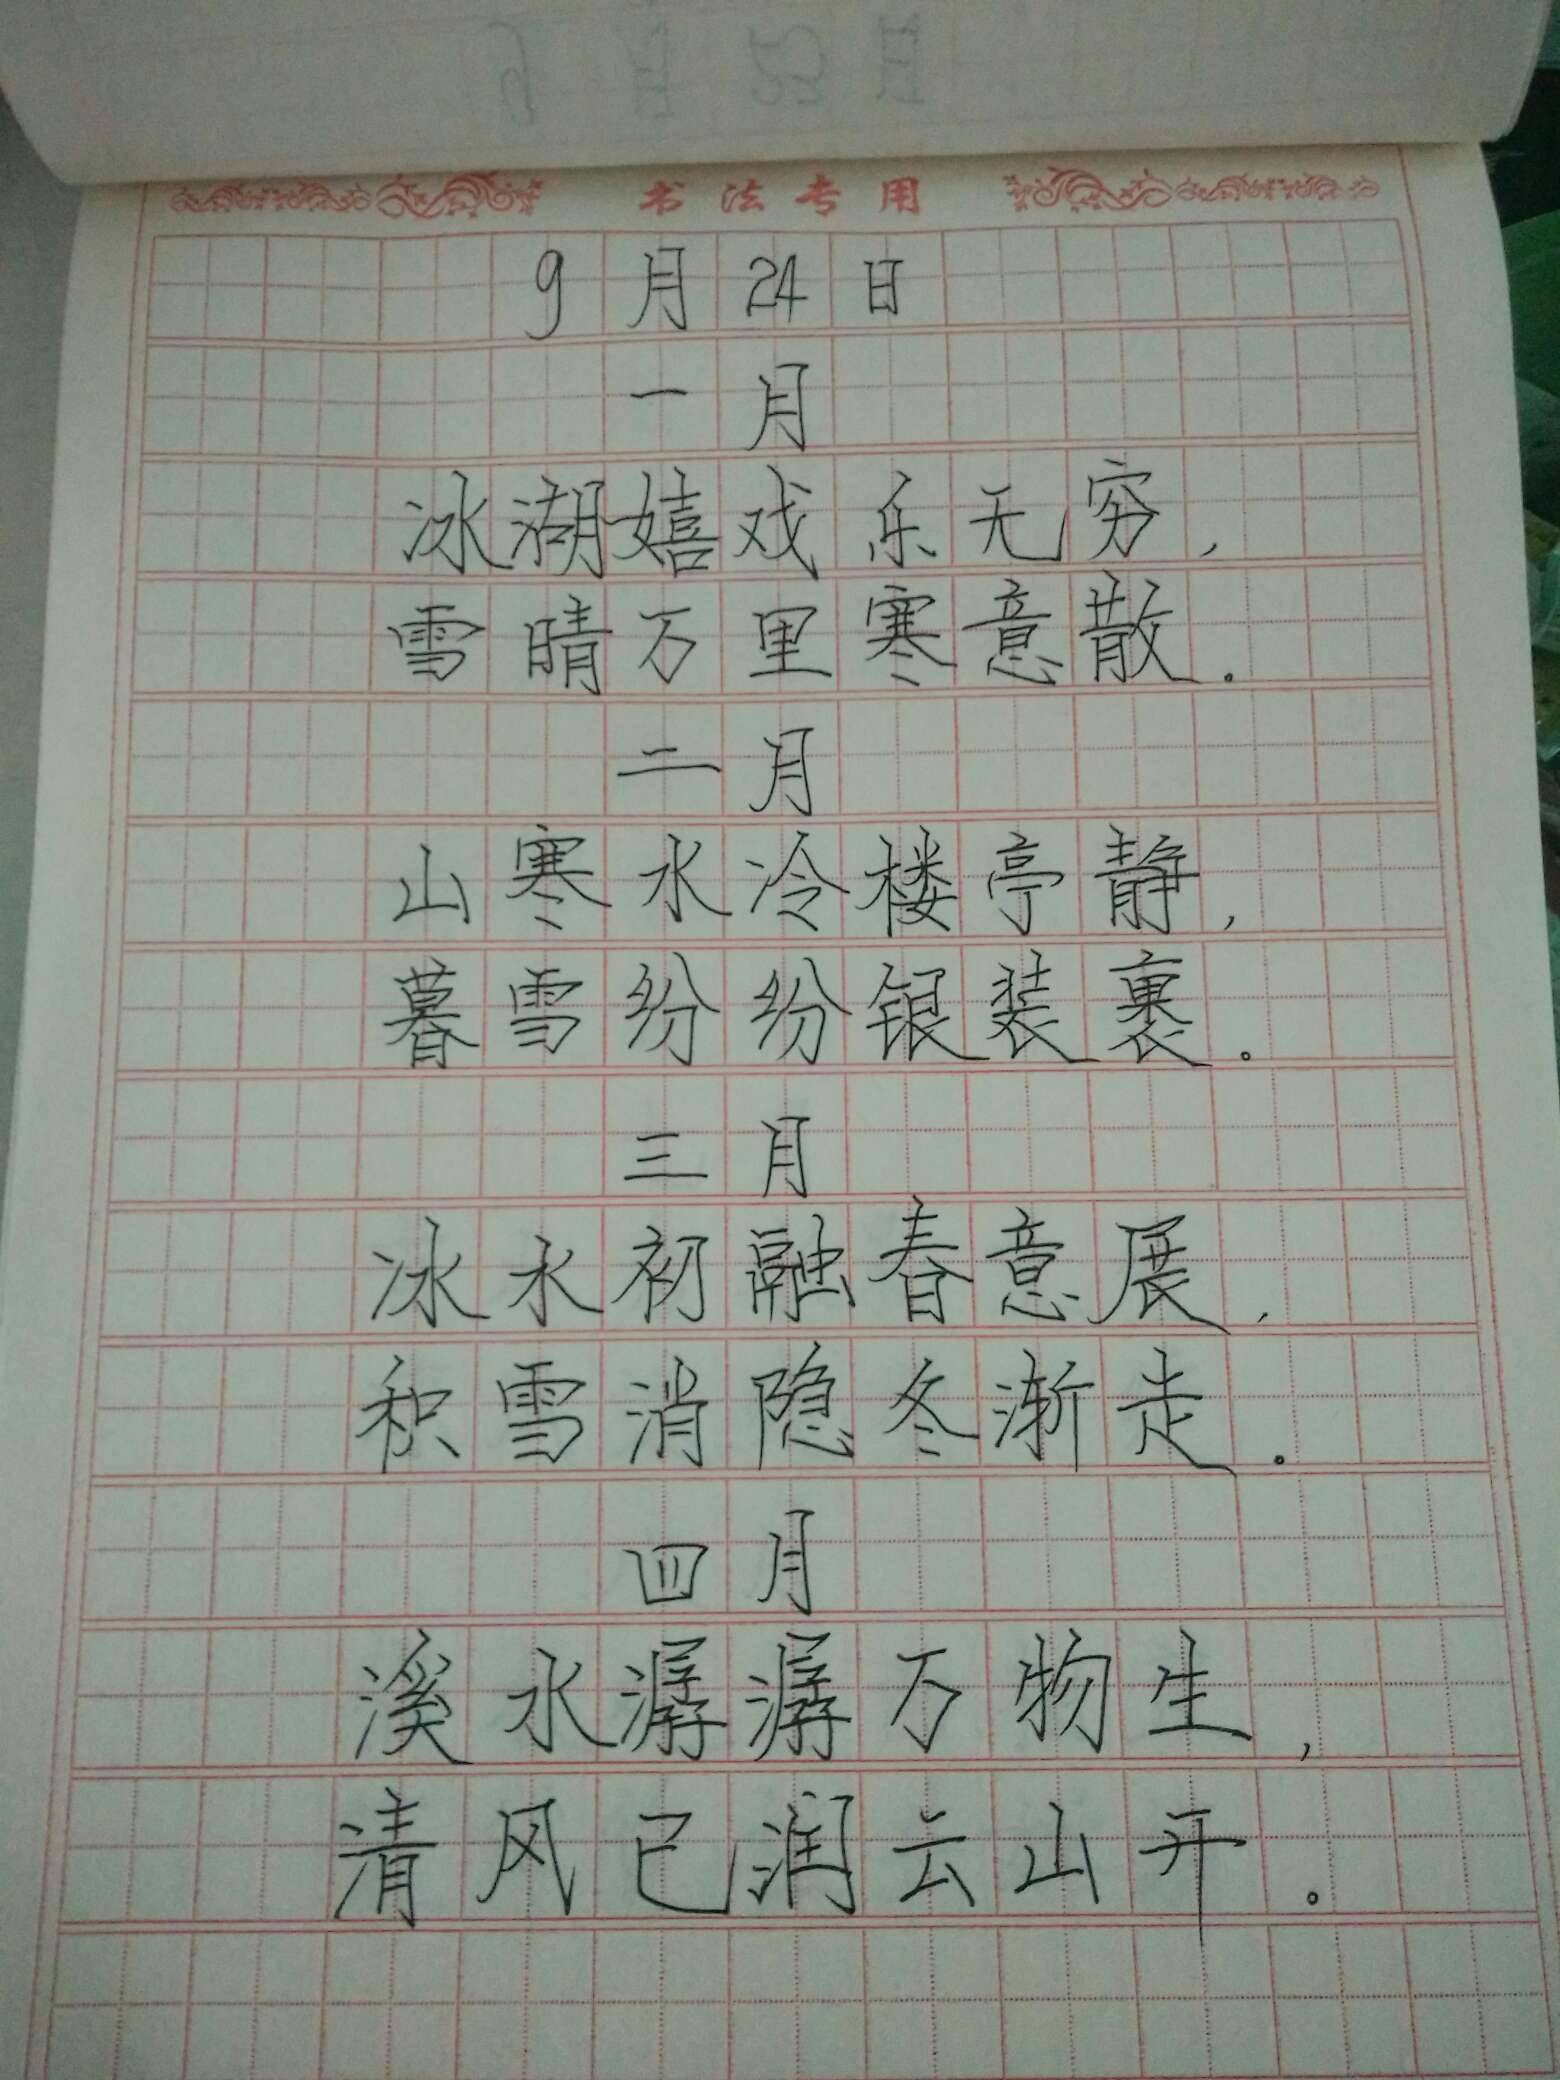 9月25日
书法专用
9月24日
一月
冰湖嬉戏乐无穷,
雪晴万里寒意散.
二月
山寒水冷楼亭静,
暮雪纷纷银装裹。
三月
冰水初融春意展,
积雪消隐冬渐走。
四月
溪水潺潺万物生,
清风已润云山开。